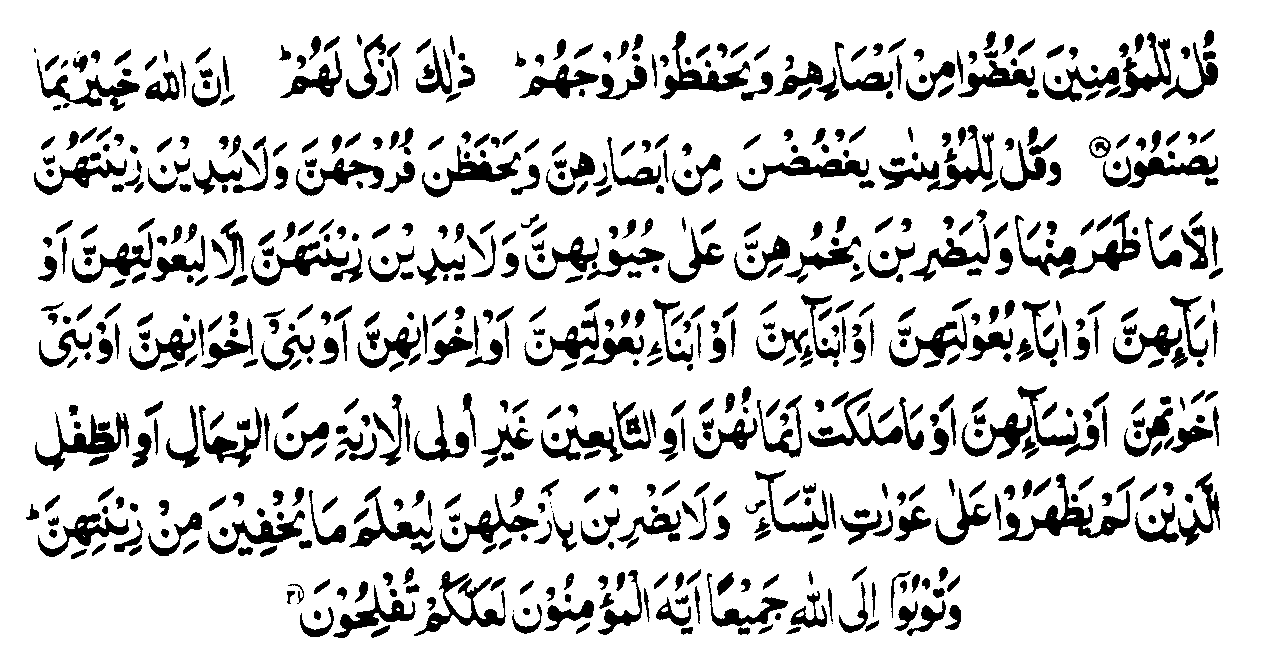 قُلْ لِّلْمُؤْمِنِيْنَ يَغُضُّوْا مِنْ اَبْصَارِهِمْ وَيَحْفَظُوْا فُرُوْجَهُمْ ؕ ذٰلِكَ اَزْكٰى لَهُمْ ؕ اِنَّ اللّٰهَ خَبِيْرٌۢ بِمَا
يَصْنَعُوْنَ ۝۳۰ وَقُلْ لِّلْمُؤْمِنٰتِ يَغْضُضْنَ مِنْ اَبْصَارِهِنَّ وَيَحْفَظْنَ فُرُوْجَهُنَّ وَلَا يُبْدِيْنَ زِيْنَتَهُنَّ
اِلَّا مَا ظَهَرَ مِنْهَا وَلْيَضْرِبْنَ بِخُمُرِهِنَّ عَلٰى جُيُوْبِهِنَّ ۪ وَلَا يُبْدِيْنَ زِيْنَتَهُنَّ اِلَّا لِبُعُوْلَتِهِنَّ اَوْ
اٰبَآئِهِنَّ اَوْ اٰبَآءِ بُعُوْلَتِهِنَّ اَوْ اَبْنَآئِهِنَّ اَوْ اَبْنَآءِ بُعُوْلَتِهِنَّ اَوْ اِخْوَانِهِنَّ اَوْ بَنِيْۤ اِخْوَانِهِنَّ اَوْ بَنِيْۤ
اَخَوٰتِهِنَّ اَوْ نِسَآئِهِنَّ اَوْ مَا مَلَكَتْ اَيْمَانُهُنَّ اَوِ التَّابِعِيْنَ غَيْرِ اُولِى الْاِرْبَةِ مِنَ الرِّجَالِ اَوِ الطِّفْلِ
الَّذِيْنَ لَمْ يَظْهَرُوْا عَلٰى عَوْرٰتِ النِّسَآءِ ۪ وَلَا يَضْرِبْنَ بِاَرْجُلِهِنَّ لِيُعْلَمَ مَا يُخْفِيْنَ مِنْ زِيْنَتِهِنَّ ؕ
وَتُوْبُوْۤا اِلَى اللّٰهِ جَمِيْعًا اَيُّهَ الْمُؤْمِنُوْنَ لَعَلَّكُمْ تُفْلِحُوْنَ ۝۳۱